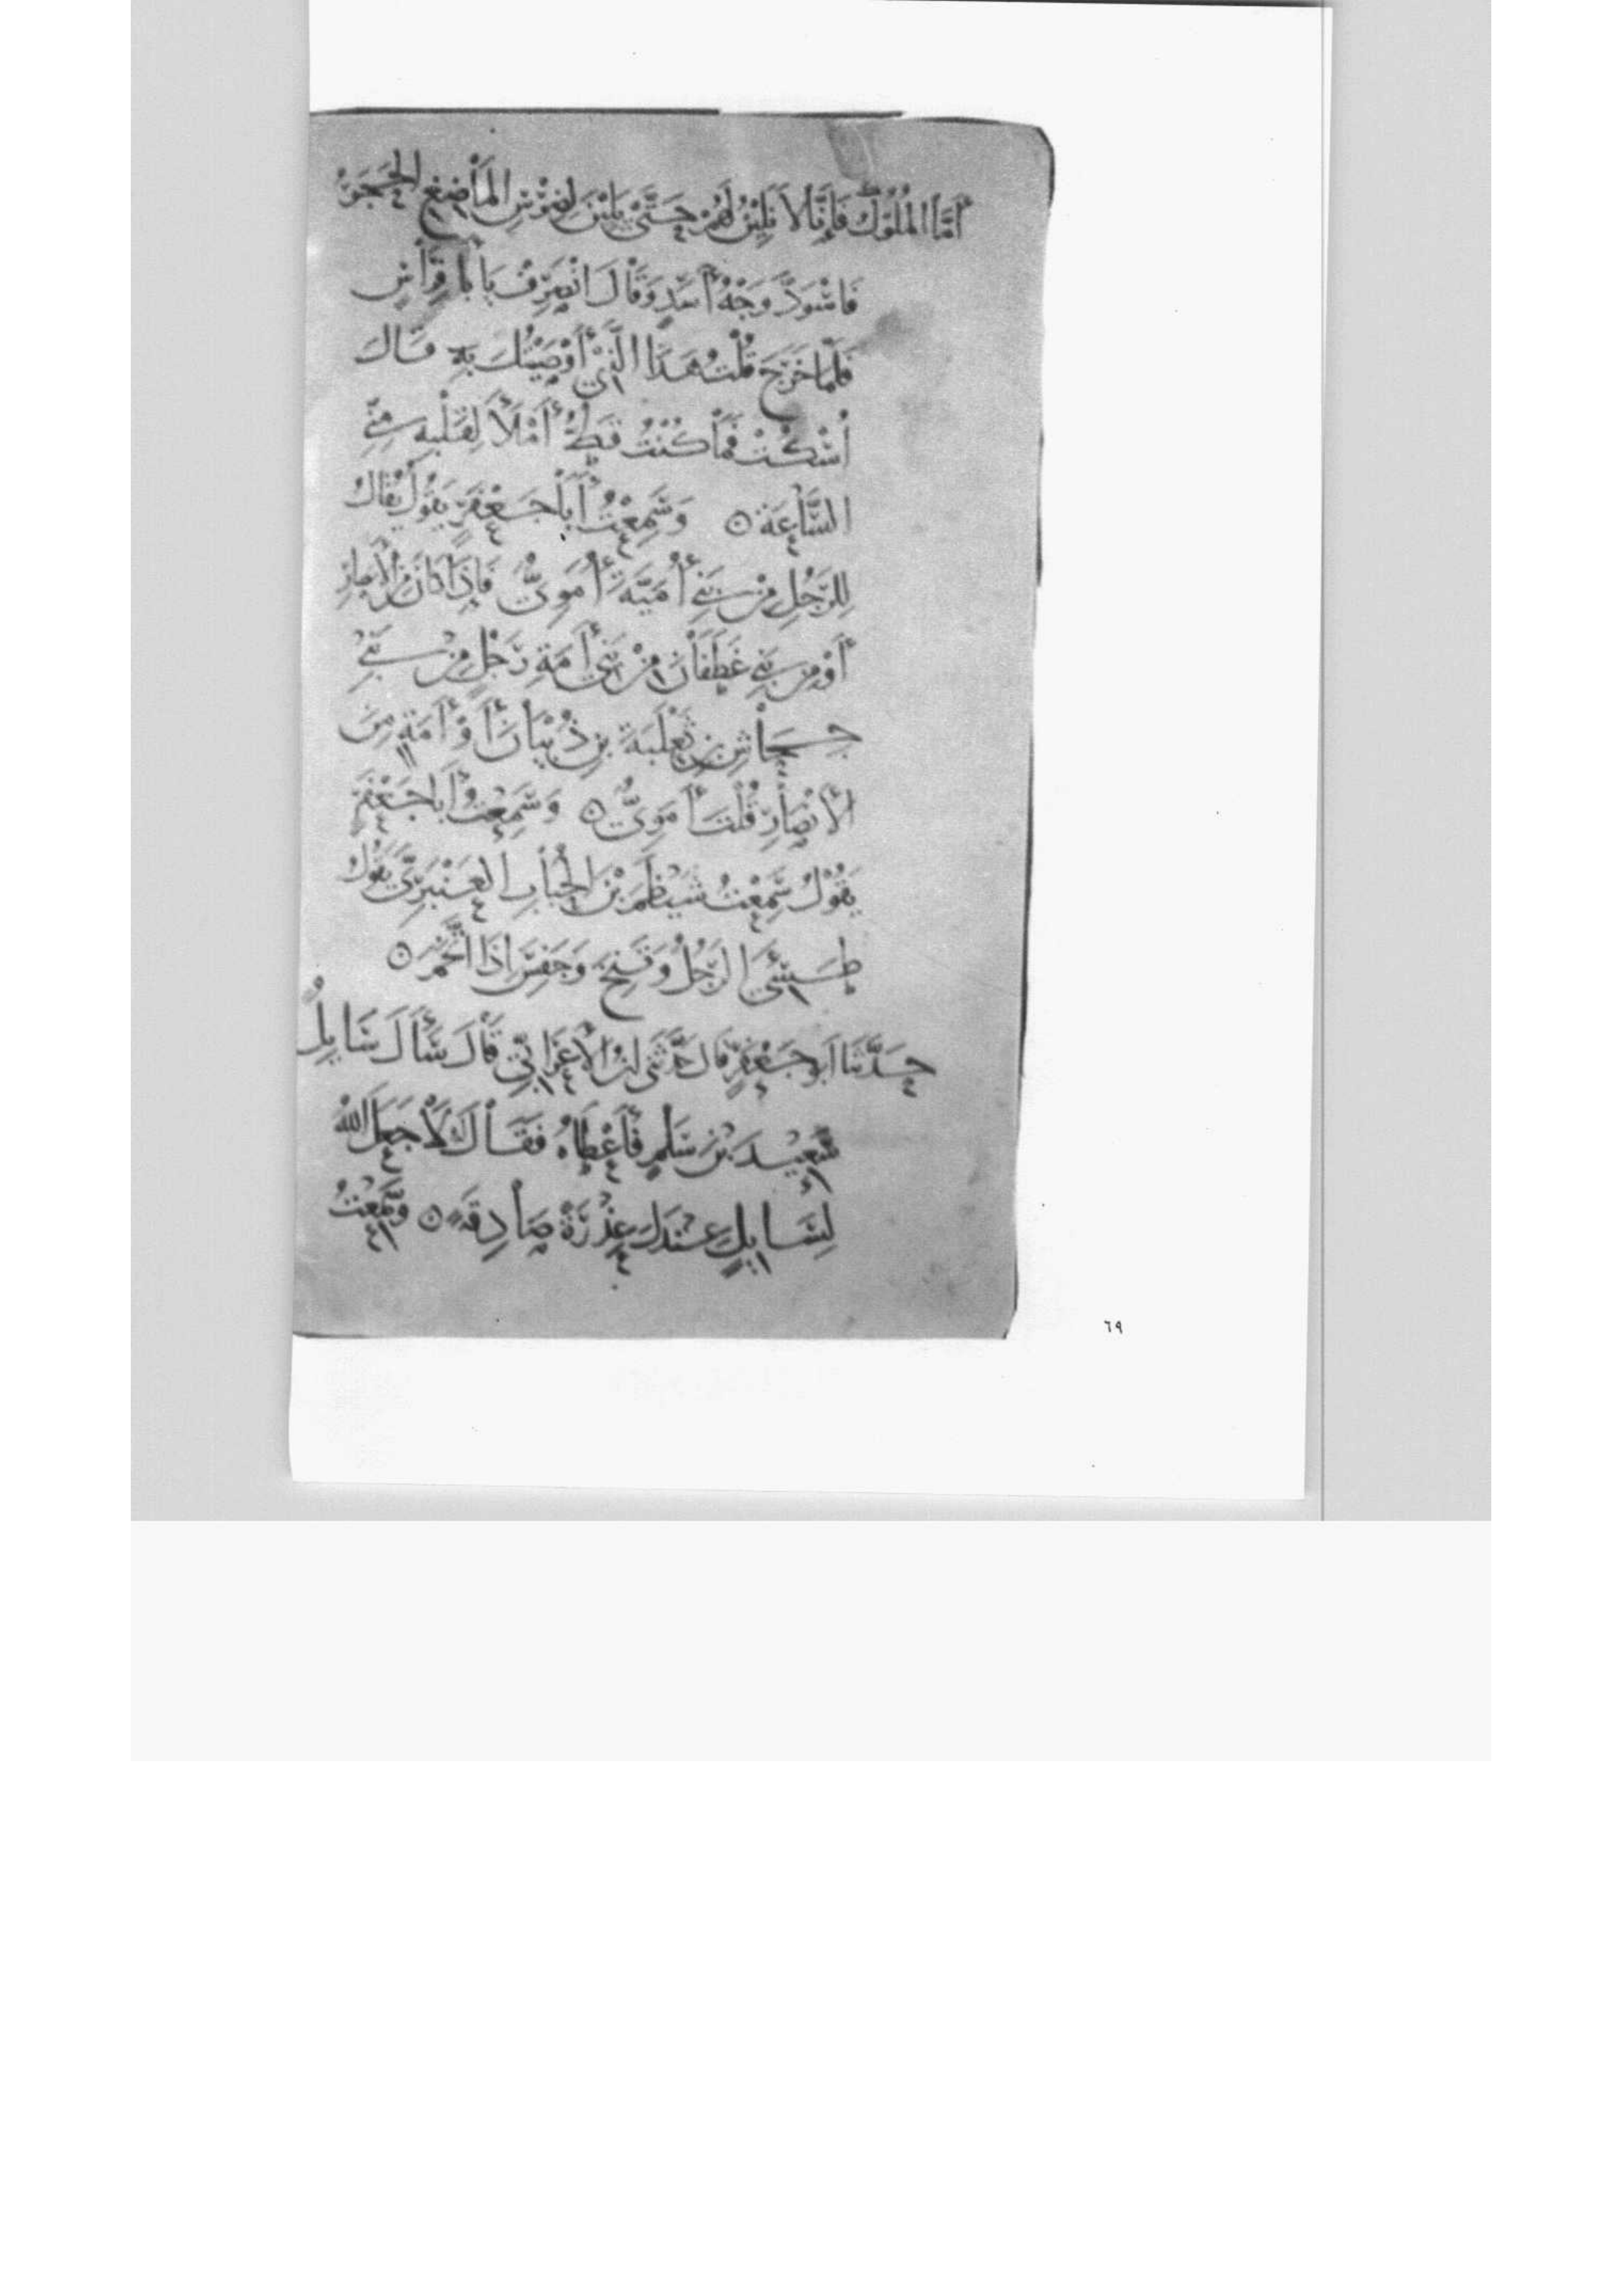 أَمَّا المُلُوكُ فَإِنَّا لَا نَلِينُ لَهُمْ حَتَّى يَلِينَ لِضِرْسِ المَاضِغِ الحَجَرُ
فَاسْوَدَّ وَجْهُ أَسَدٍ وَقَالَ انْصَرِفْ يَا بَا فِرَاسٍ
فَلَمَّا خَرَجَ قُلْتُ هَذَا الَّذِي أَوْصَيْتُكَ بِهِ قَالَ
اُسْكُتْ فَمَا كُنْتُ قَطُّ أَمْلَأَ لِقَلْبِهِ مِنِّي
السَّاعَةَ ه وَسَمِعْتُ أَبَا جَعْفَرٍ يَقُولُ يُقَالُ
لِلرَّجُلِ مِنْ بَنِي أُمَيَّةَ أُمَوِيٌّ فَإِذَا كَانَ مِنَ الأَنْصَارِ
أَوْ مِنْ بَنِي غَطَفَانَ مِنْ بَنِي أَمَةِ رَجُلٍ مِنْ بَنِي
جِحَاشِ بْنِ ثَعْلَبَةَ بْنِ ذُبْيَانَ أَوْ أَمَةٍ مِنَ
الأَنْصَارِ قُلْتَ أَمَوِيٌّ ه وَسَمِعْتُ أَبَا جَعْفَرٍ
يَقُولُ سَمِعْتُ شَيْظَمَ بْنَ الحُبَابِ العَنْبَرِيَّ يَقُولُ
طَسِئَ الرَّجُلُ وَسَنِخَ وَجَفِسَ إِذَا اتَّخَمَ ه
حَدَّثَنَا أَبُو جَعْفَرٍ قَالَ حَدَّثَنِي ابْنُ الأَعْرَابِيِّ قَالَ سَأَلَ سَايِلٌ
سَعِيدَ بْنَ سَلْمٍ فَأَعْطَاهُ فَقَالَ لَا جَعَلَ اللهُ
لِسَايِلٍ عِنْدَكَ عِذْرَةً صَادِقَةً ه وَسَمِعْتُ
٦٩